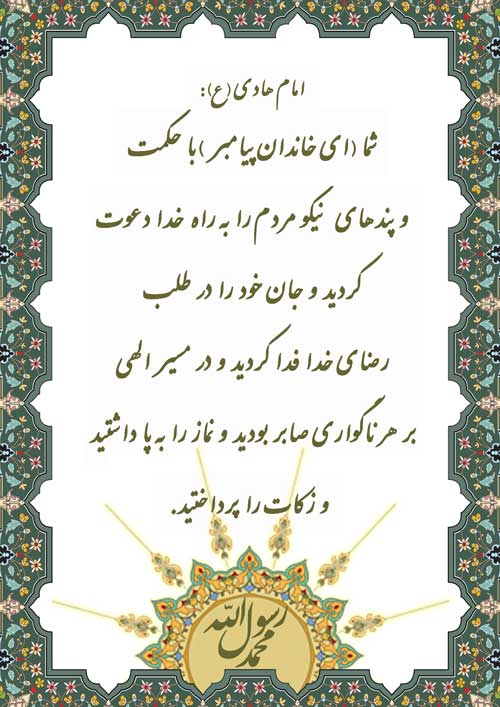 امام هادی (ع):
شما (ای خاندان پیامبر) با حکمت
و پندهای نیکو مردم را به راه خدا دعوت
کردید و جان خود را در طلب
رضای خدا فدا کردید و در مسیر الهی
بر هر ناگواری صابر بودید و نماز را به پا داشتید
و زکات را پرداختید.
محمد رسول الله